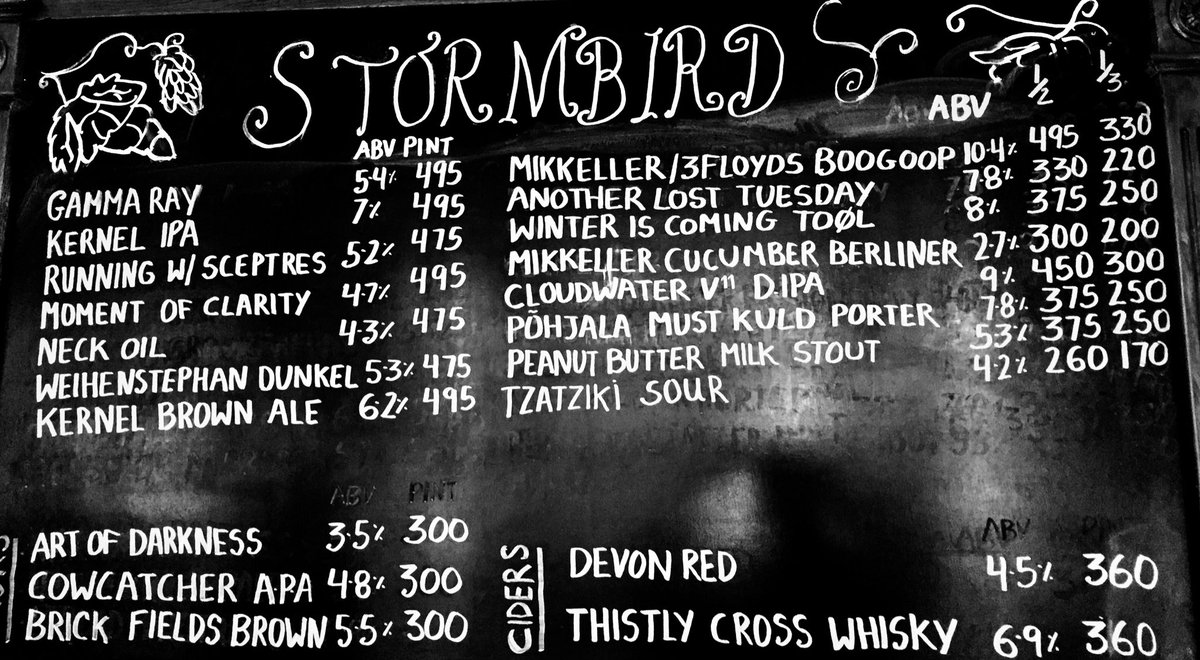 STORMBIRD
ABV PINT
GAMMA RAY 5.4% 495
KERNEL IPA 7% 495
RUNNING W/ SCEPTRES 5.2% 475
MOMENT OF CLARITY 4.7% 495
NECK OIL 4.3% 475
WEIHENSTEPHAN DUNKEL 5.3% 475
KERNEL BROWN ALE 6.2% 495
ABV PINT
ART OF DARKNESS 3.5% 300
COWCATCHER A.P.A 4.8% 300
BRICK FIELDS BROWN 5.5% 300
ABV 1/2 1/3
MIKKELLER/3FLOYDS BOOGOOP 10.4% 495 330
ANOTHER LOST TUESDAY 7.8% 330 220
WINTER IS COMING TOØL 8% 375 250
MIKKELLER CUCUMBER BERLINER 2.7% 300 200
CLOUDWATER V11 D.IPA 9% 450 300
PÕHJALA MUST KULD PORTER 7.8% 375 250
PEANUT BUTTER MILK STOUT 5.3% 375 250
TZATZIKI SOUR 4.2% 260 170
CIDERS
ABV
DEVON RED 4.5% 360
THISTLY CROSS WHISKY 6.9% 360